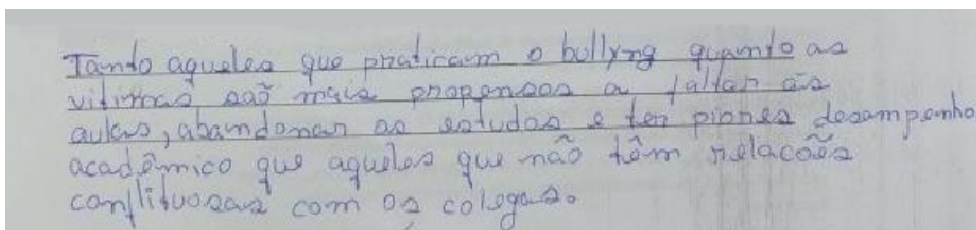 Tando aqueles que praticam o bullyng quando as
vitimas, saõ mais propensos a faltar às
aulas, abandonar as estudos e ter piores desampenho
acadêmico que aqueles que não têm relacões
conflituosas com os colegas.